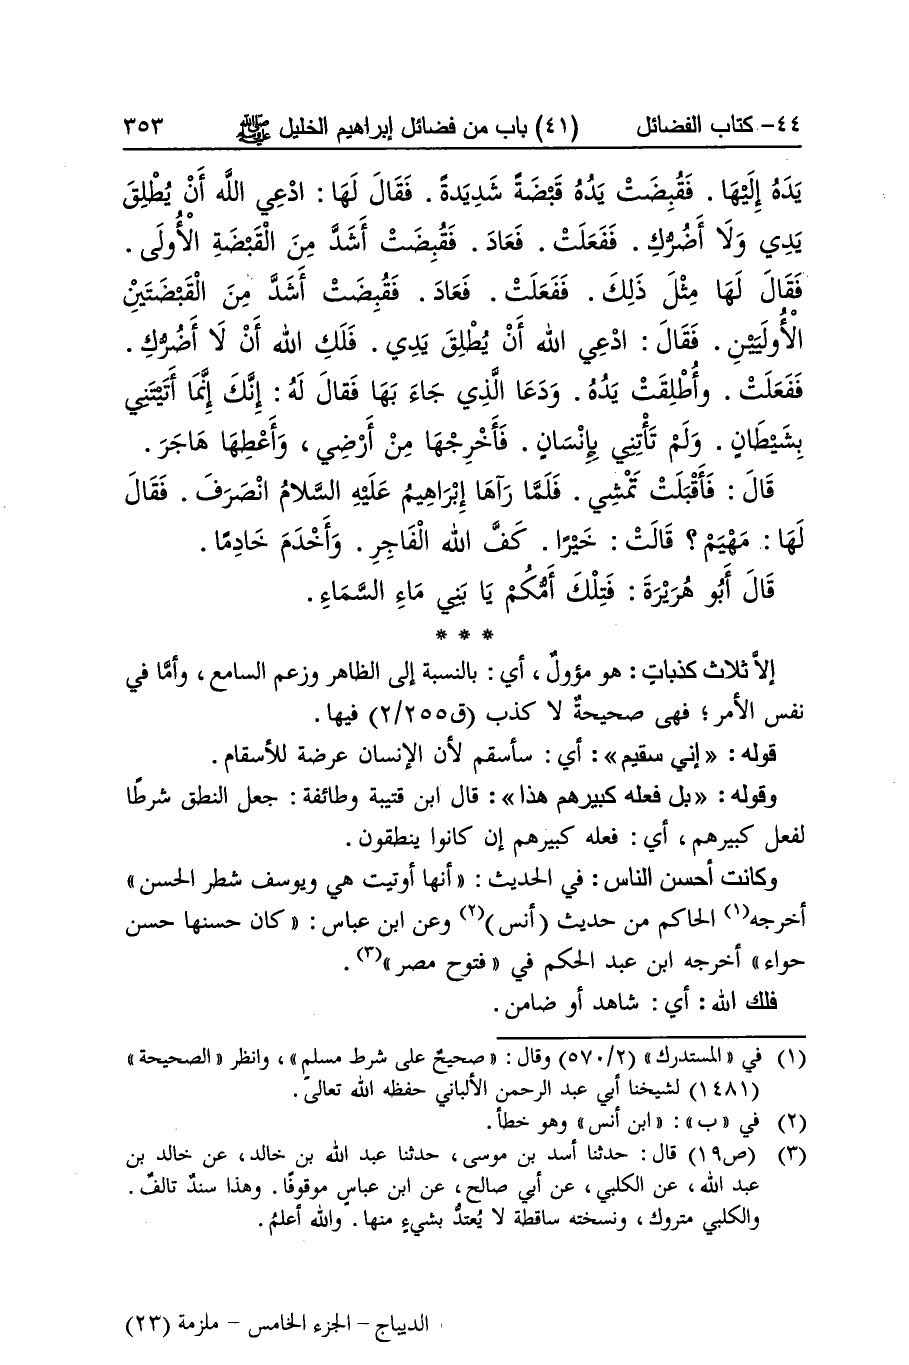 ٤٤- كتاب الفضائل (٤١) باب من فضائل إبراهيم الخليل ﷺ ٣٥٣
يَدَهُ إِلَيْهَا . فَقُبِضَتْ يَدُهُ قَبْضَةً شَدِيدَةً . فَقَالَ لَهَا : ادْعِي اللَّه أَنْ يُطْلِقَ
يَدِي وَلَا أَضُرُّكِ . فَفَعَلَتْ . فَعَادَ . فَقُبِضَتْ أَشَدَّ مِنَ الْقَبْضَةِ الْأُولَى .
فَقَالَ لَهَا مِثْلَ ذَلِكَ . فَفَعَلَتْ . فَعَادَ . فَقُبِضَتْ أَشَدَّ مِنَ الْقَبْضَتَيْنِ
الْأُولَيَيْنِ . فَقَالَ : ادْعِي الله أَنْ يُطْلِقَ يَدِي . فَلَكِ الله أَنْ لَا أَضُرُّكِ .
فَفَعَلَتْ . وأُطْلِقَتْ يَدُهُ . وَدَعَا الَّذِي جَاءَ بَهَا فَقالَ لَهُ : إِنَّكَ إِنَّمَا أَتَيْتَنِي
بِشَيْطَانٍ . وَلَمْ تَأْتِنِي بِإِنْسَانٍ . فَأَخْرِجْهَا مِنْ أَرْضِي ، وَأَعْطِهَا هَاجَرَ .
قَالَ : فَأَقْبَلَتْ تَمْشِي . فَلَمَّا رَآهَا إِبْرَاهِيمُ عَلَيْهِ السَّلامُ انْصَرَفَ . فَقَالَ
لَهَا : مَهْيَمْ ؟ قَالَتْ : خَيْرًا . كَفَّ الله الْفَاجِرِ . وَأَخْدَمَ خَادِمًا .
قَالَ أَبُو هُرَيْرَةَ : فَتِلْكَ أُمُّكُمْ يَا بَنِي مَاءِ السَّمَاءِ .
* * *
إلاَّ ثلاث كذباتٍ : هو مؤولٌ ، أي : بالنسبة إلى الظاهر وزعم السامع ، وأمَّا في
نفس الأمر ؛ فهى صحيحةٌ لا كذب (ق٢/٢٥٥) فيها .
قوله : « إني سقيم » : أي : سأسقم لأن الإنسان عرضة للأسقام .
وقوله : « بل فعله كبيرهم هذا » : قال ابن قتيبة وطائفة : جعل النطق شرطًا
لفعل كبيرهم ، أي : فعله كبيرهم إن كانوا ينطقون .
وكانت أحسن الناس : في الحديث : « أنها أوتيت هي ويوسف شطر الحسن »
أخرجه(١) الحاكم من حديث (أنس)(٢) وعن ابن عباس : « كان حسنها حسن
حواء » أخرجه ابن عبد الحكم في « فتوح مصر »(٣) .
فلك الله : أي : شاهد أو ضامن .
(١) في « المستدرك » (٥٧٠/٢) وقال : « صحيحٌ على شرط مسلم » ، وانظر « الصحيحة »
(١٤٨١) لشيخنا أبي عبد الرحمن الألباني حفظه الله تعالىَ .
(٢) في « ب » : « ابن أنس » وهو خطأ .
(٣) (ص١٩) قال : حدثنا أسد بن موسى ، حدثنا عبد الله بن خالد ، عن خالد بن
عبد الله ، عن الكلبي ، عن أبي صالح ، عن ابن عباسٍ موقوفًا . وهذا سندٌ تالفٌ .
والكلبي متروك ، ونسخته ساقطة لا يُعتدُّ بشيءٍ منها . والله أعلمُ .
الديباج - الجزء الخامس - ملزمة (٢٣)